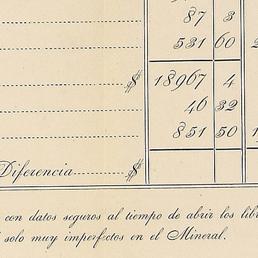 87 3
531 60
$ 18967 4
46 32
851 50
Diferencia $
con datos seguros al tiempo de abrir los libr
solo muy imperfectos en el Mineral.